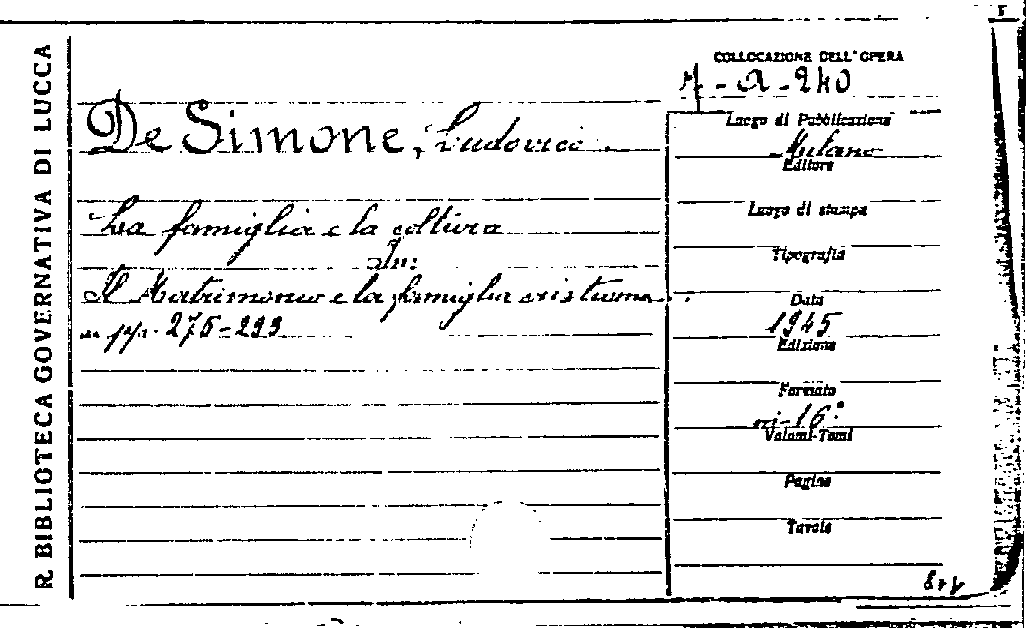 R BIBLIOTECA GOVERNATIVA DI LUCCA
COLLOCAZIONE DELL'OPERA
A-240
De Simone, Ludovico.
Luogo di Pubblicazione
Milano
Editore
La famiglia e la coltura
Luogo di stampa
In:
Tipografia
Il Matrimonio e la famiglia cristiana
Data
1945
a pp. 275-299
Edizione
Formato
in-16°
Volumi-Tomi
Pagine
Tavole